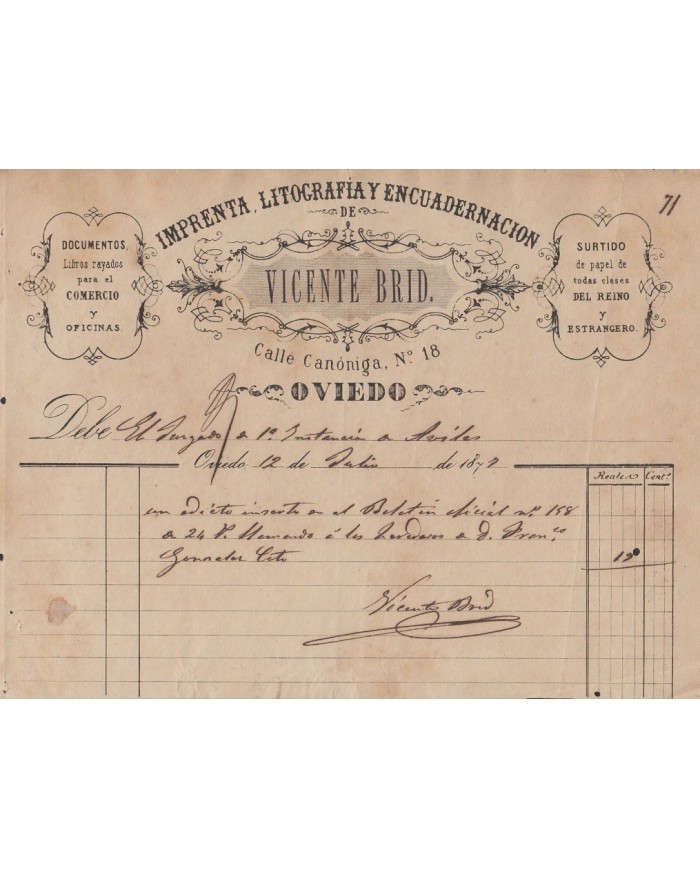 71
IMPRENTA, LITOGRAFÍA Y ENCUADERNACION
DE
VICENTE BRID.
Calle Canóniga, Nº 18
OVIEDO
DOCUMENTOS,
Libros rayados
para el
COMERCIO
y
OFICINAS.
SURTIDO
de papel de
todas clases
DEL REINO
y
ESTRANGERO.
Debe El Juzgado de 1ª Instancia de Aviles
Oviedo 12 de Julio de 187
Reales Cent.s
un edicto inserto en el Boletin oficial nº 158
de 24 llamando á los herederos de D. Franco
Gonzalez Cito
Vicente Brid